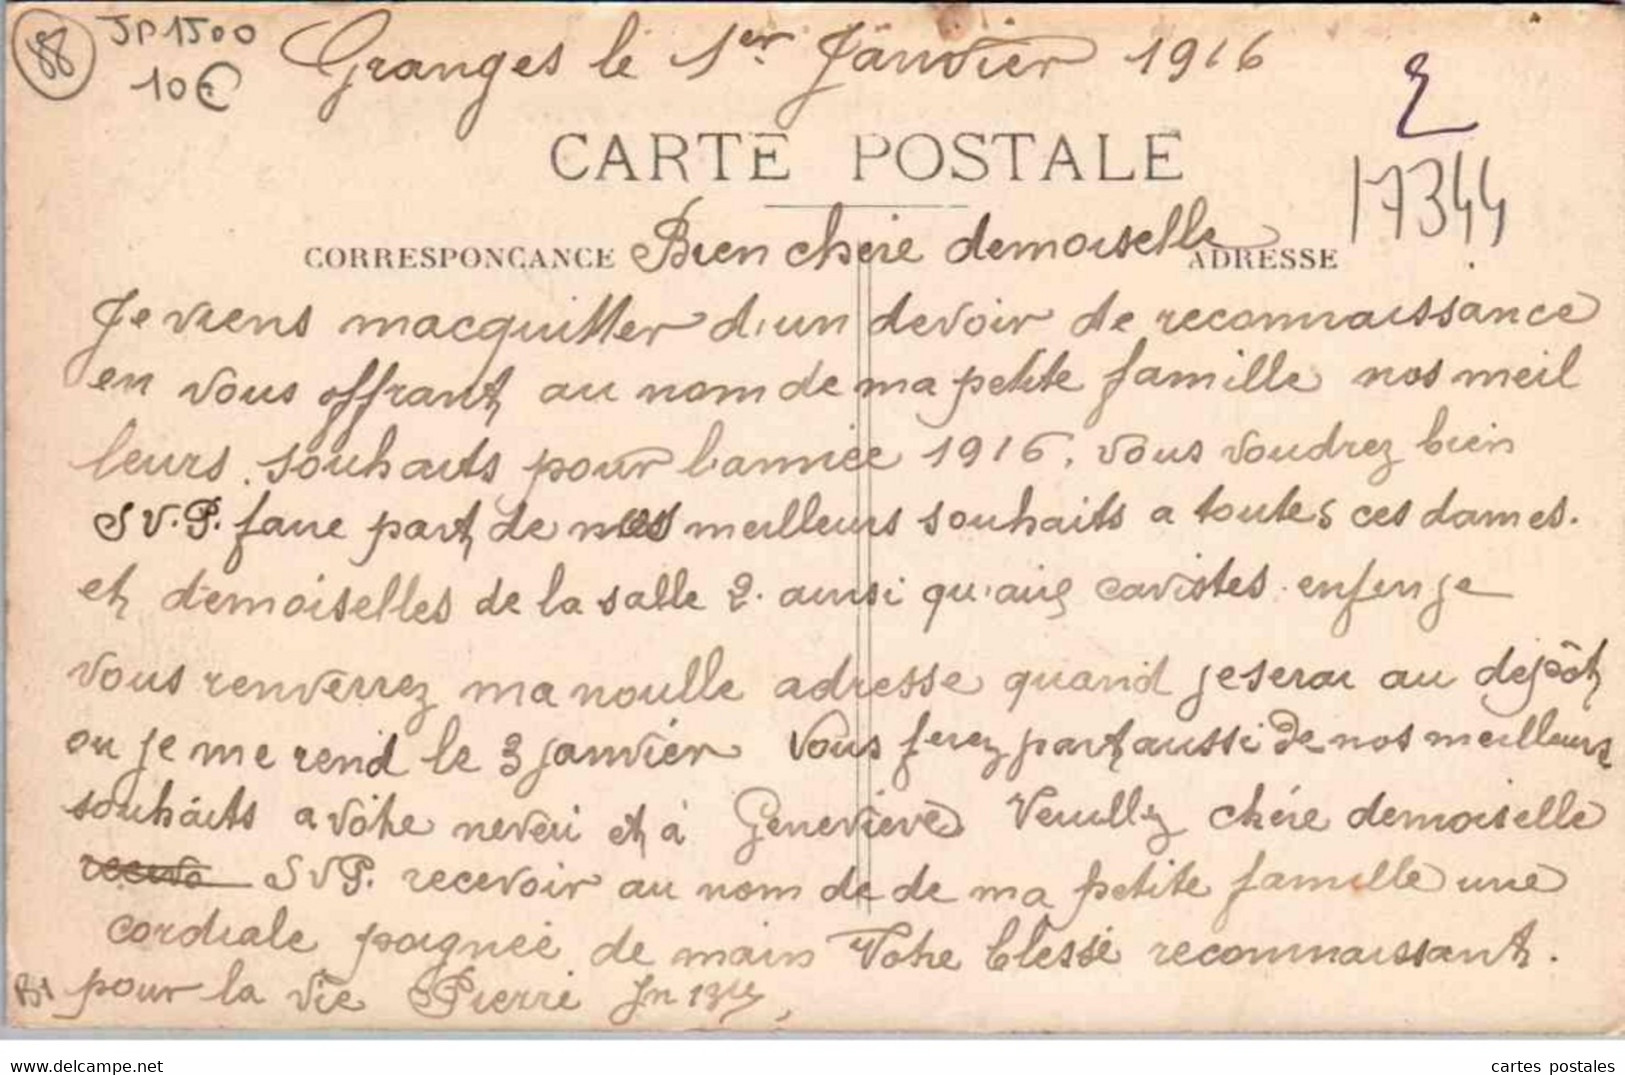 88 JP1500
10€
Granges le 1er Janvier 1916
17344
CARTE POSTALE
CORRESPONCANCE Bien chère demoiselle ADRESSE
Je viens macquitter d'un devoir de reconnaissance
en vous offrant au nom de ma petite famille nos meil
leurs souhaits pour l'année 1916. vous voudrez bien
SV.P. faire part de mes meilleurs souhaits a toutes ces dames.
et demoiselles de la salle 2. ainsi qu'aux cavistes. enfen je
vous renverrez ma noulle adresse quand je serai au dépôt
ou je me rend le 3 janvier Vous ferez part aussi de nos meilleurs
souhaits a vôtre neveu et à Geneviève Veuillez chère demoiselle
recevo SVP. recevoir au nom de de ma petite famille une
cordiale poignée de main Votre blessé reconnaissant.
B1 pour la vie Pierre
delcampe.net
cartes postales